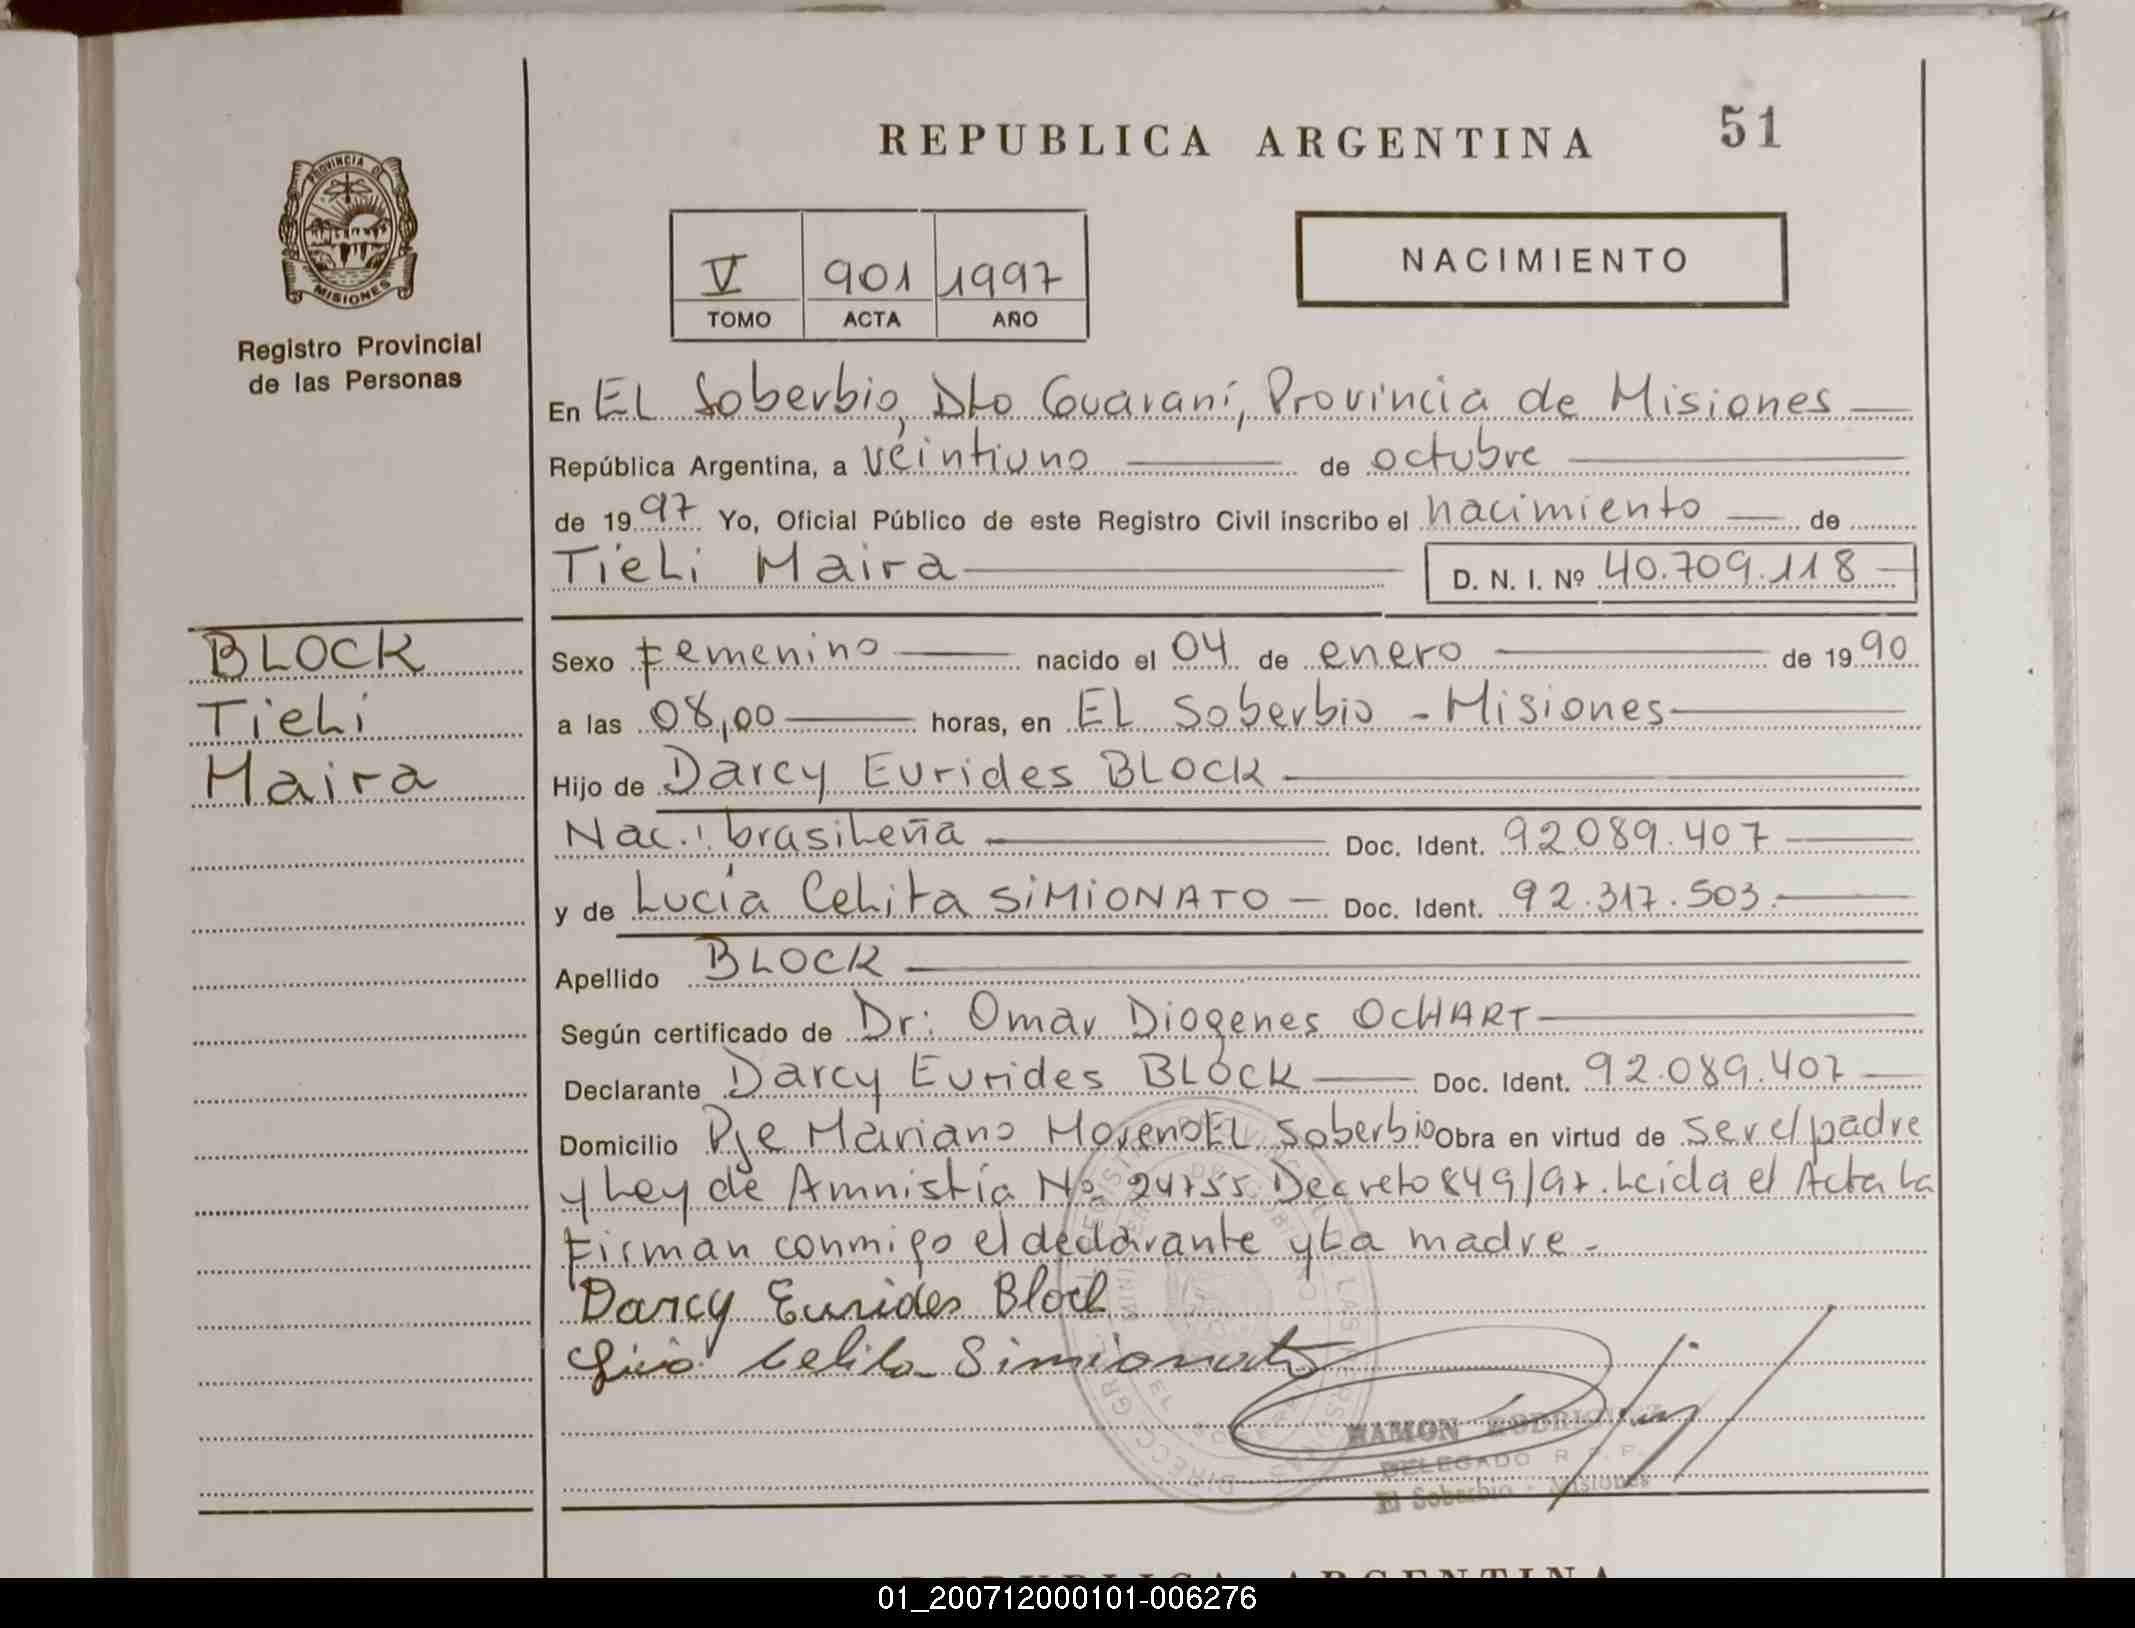 REPUBLICA ARGENTINA 51
PROVINCIA DE
MISIONES
Registro Provincial
de las Personas
V 901 1997
TOMO ACTA AÑO
NACIMIENTO
En EL Soberbio, Dto Guaraní, Provincia de Misiones
República Argentina, a veintiuno de octubre
de 1997 Yo, Oficial Público de este Registro Civil inscribo el nacimiento de
Tieli Maira D. N. I. Nº 40.709.118
BLOCK
Tieli
Maira
Sexo femenino nacido el 04 de enero de 1990
a las 08,00 horas, en EL Soberbio - Misiones
Hijo de Darcy Eurides BLOCK
Nac.: brasileña Doc. Ident. 92.089.407
y de Lucía Celita SIMIONATO Doc. Ident. 92.317.503.
Apellido BLOCK
Según certificado de Dr: Omar Diogenes OCHART
Declarante Darcy Eurides BLOCK Doc. Ident. 92.089.407
Domicilio Pje Mariano Moreno EL Soberbio Obra en virtud de ser el padre
y Ley de Amnistía No 24755 Decreto 849/97. Leida el Acta La
firman conmigo el declarante y La madre.-
Darcy Eurides Block
Celita Simionato
RAMON RODRIGUEZ
DELEGADO R. P. P.
El Soberbio - Misiones
REPUBLICA ARGENTINA
01_200712000101-006276